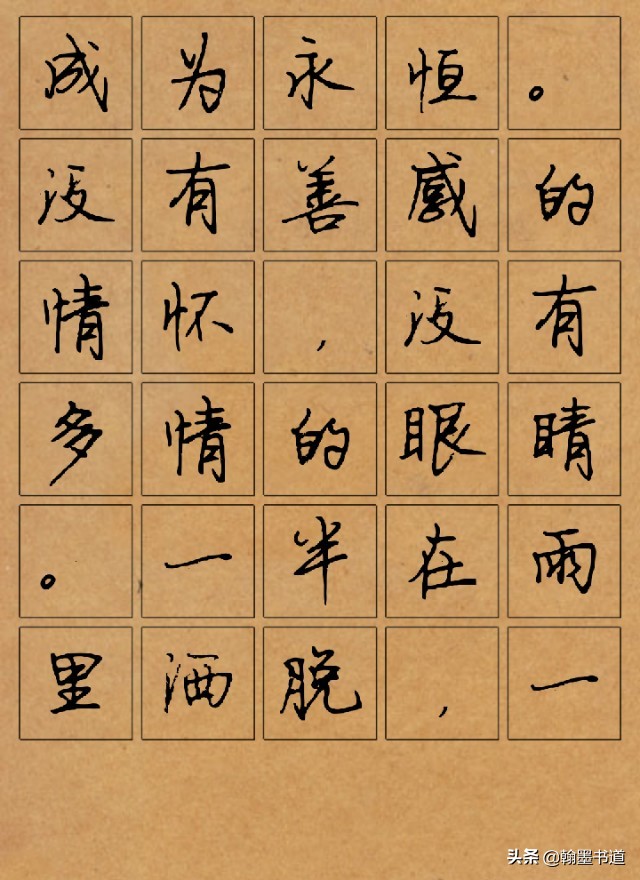 成为永恒。
没有善感的
情怀，没有
多情的眼睛
。一半在雨
里洒脱，一
头条 @翰墨书道